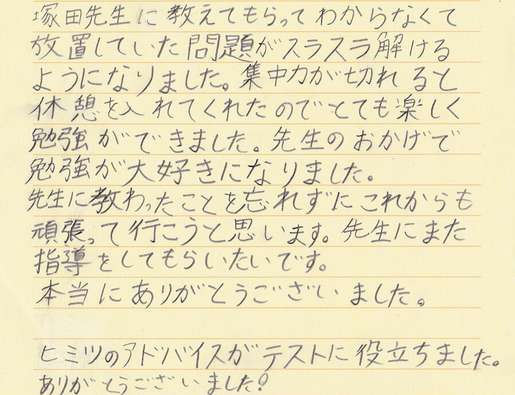 塚田先生に教えてもらってわからなくて
放置していた問題がスラスラ解ける
ようになりました。集中力が切れると
休憩を入れてくれたのでとても楽しく
勉強ができました。先生のおかげで
勉強が大好きになりました。
先生に教わったことを忘れずにこれからも
頑張って行こうと思います。先生にまた
指導をしてもらいたいです。
本当にありがとうございました。
ヒミツのアドバイスがテストに役立ちました。
ありがとうございました!